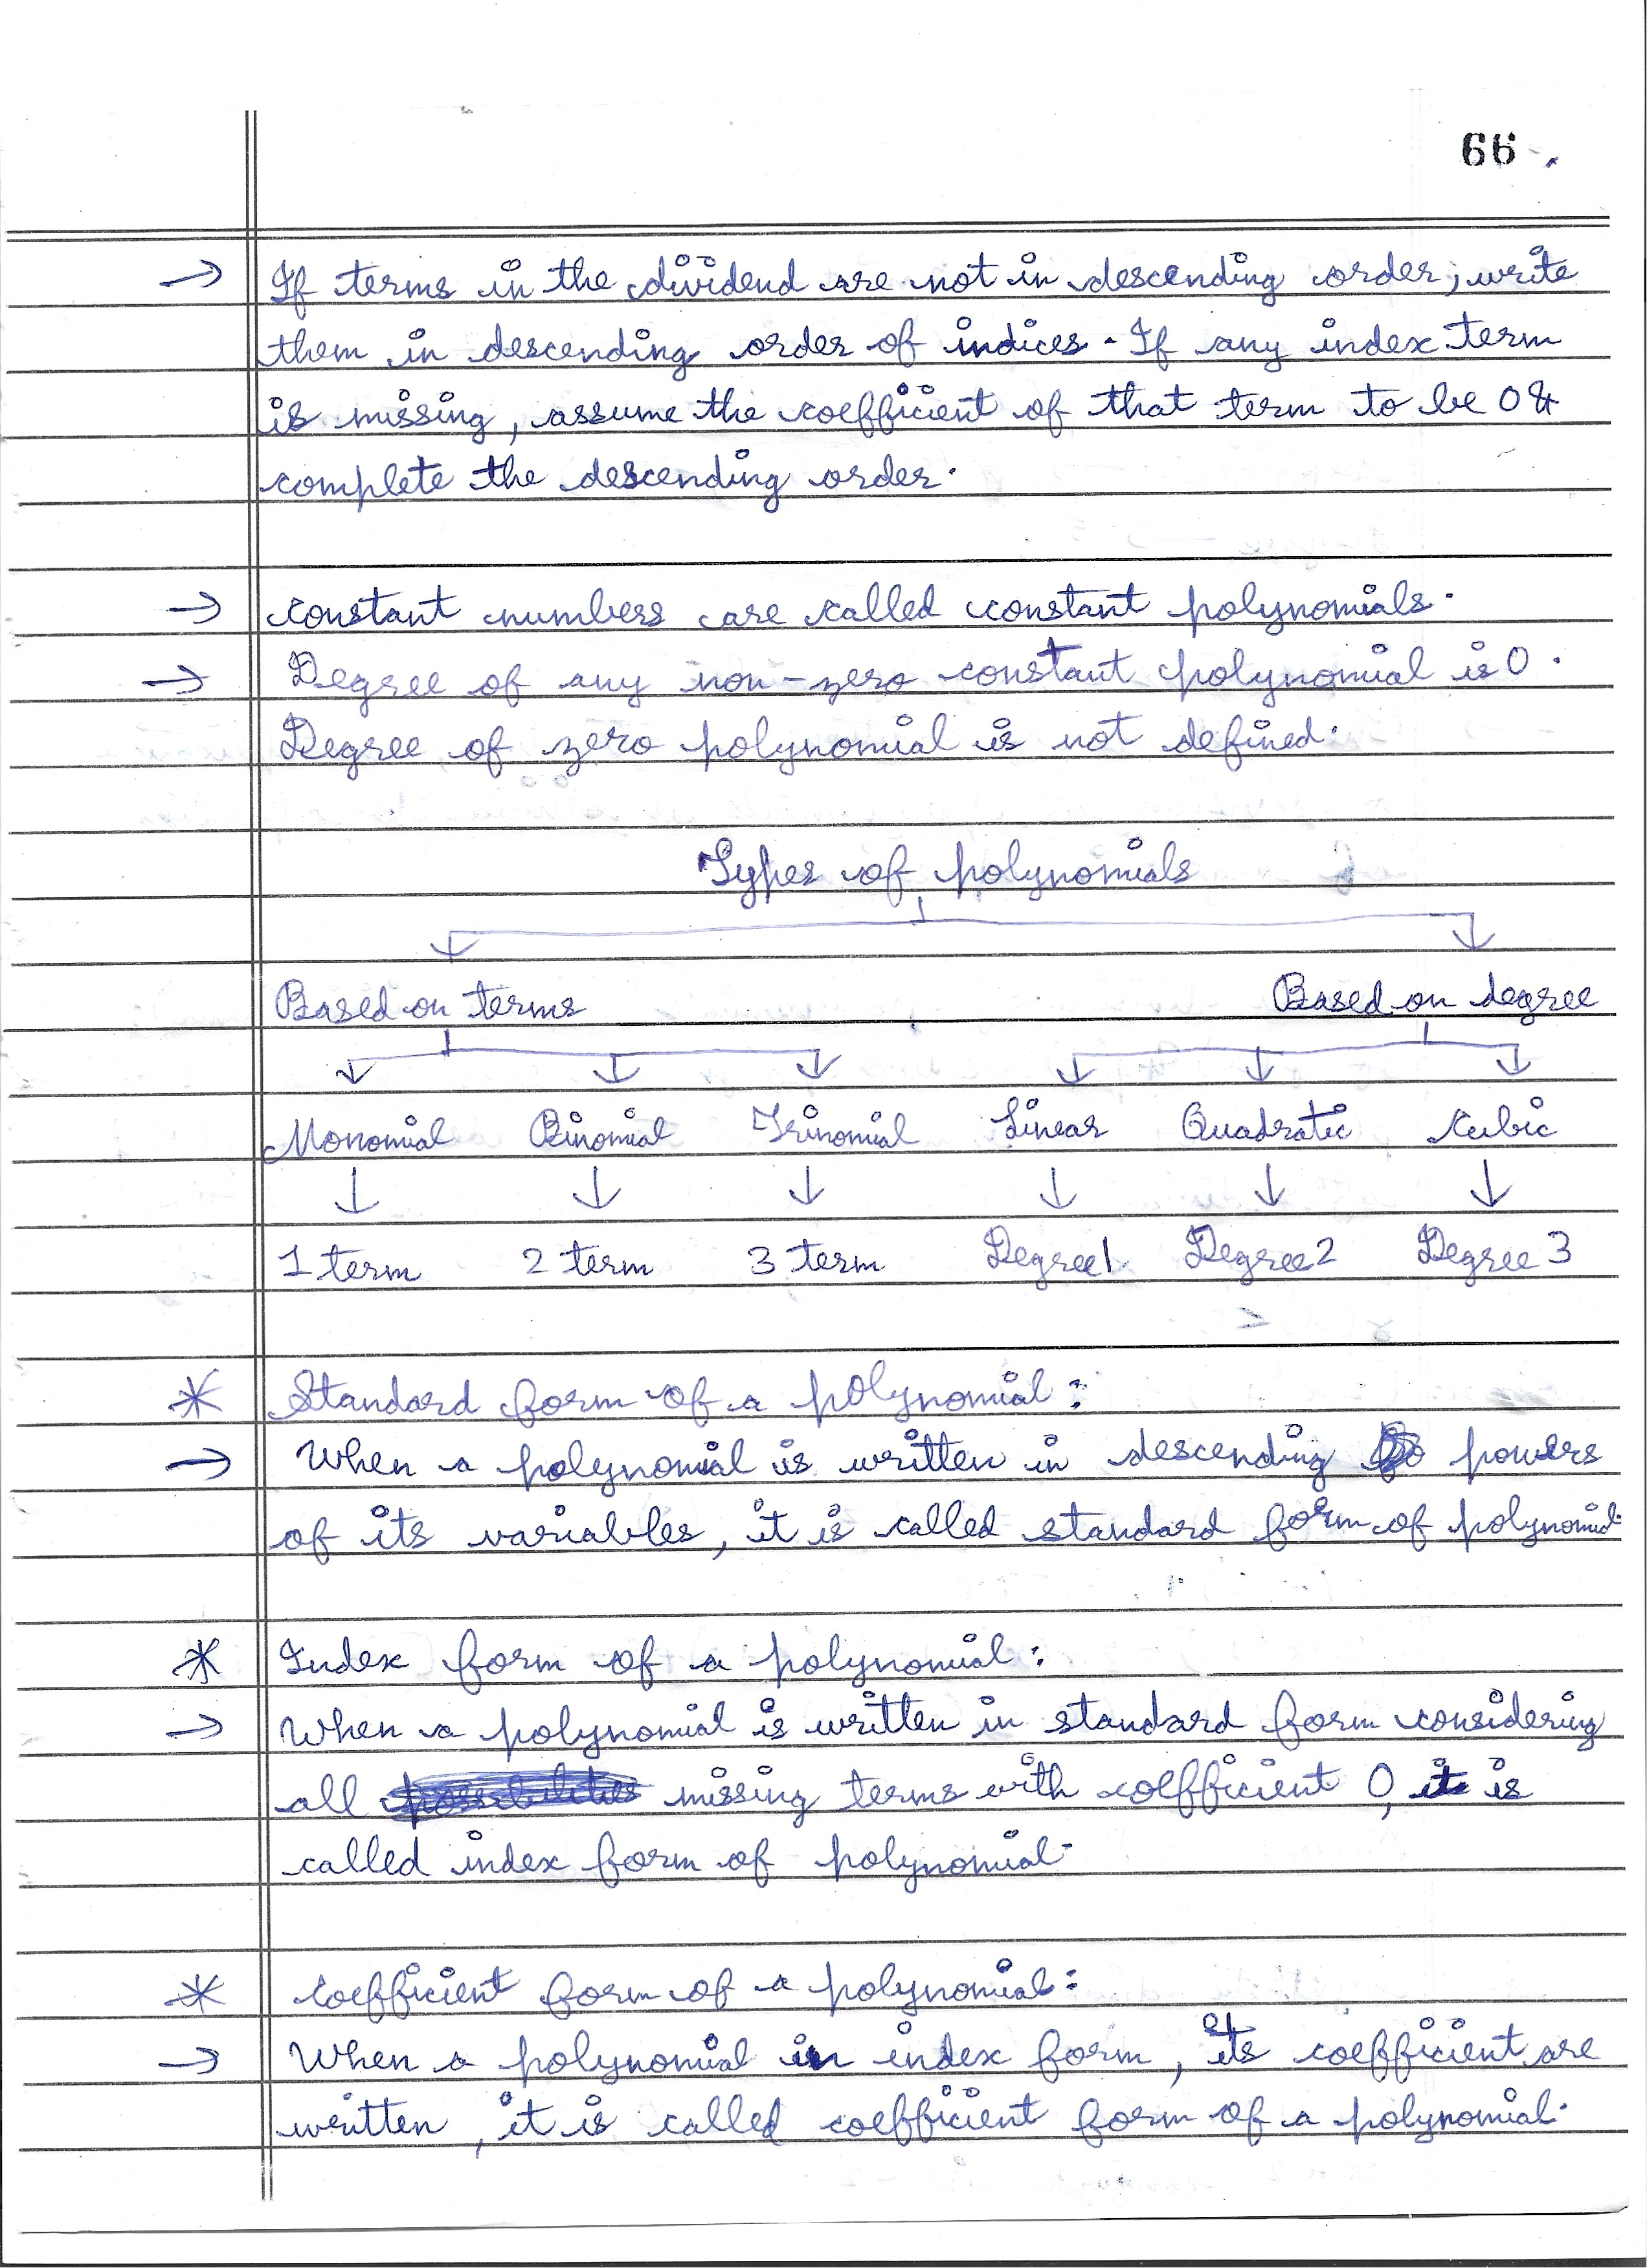 66
→ If terms in the dividend are not in descending order, write
them in descending order of indices. If any index term
is missing, assume the coefficient of that term to be 0 &
complete the descending order.
→ constant numbers are called constant polynomials.
→ Degree of any non-zero constant polynomial is 0.
Degree of zero polynomial is not defined.
Types of polynomials
Based on terms Based on degree
Monomial Binomial Trinomial Linear Quadratic Cubic
1 term 2 term 3 term Degree 1 Degree 2 Degree 3
* Standard form of a polynomial:
→ When a polynomial is written in descending powers
of its variables, it is called standard form of polynomial.
* Index form of a polynomial:
→ When a polynomial is written in standard form considering
all missing terms with coefficient 0, it is
called index form of polynomial.
* Coefficient form of a polynomial:
→ When a polynomial in index form, its coefficient are
written, it is called coefficient form of a polynomial.